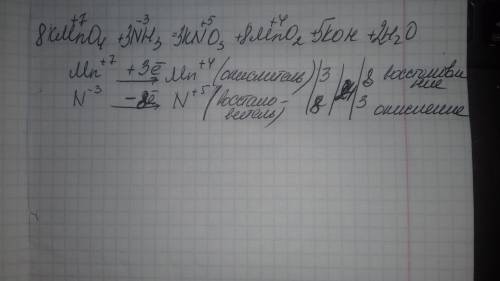 8KMn⁺⁷O₄ + 3N⁻³H₃ = 3KN⁺⁵O₃ + 8Mn⁺⁴O₂ + 5KOH + 2H₂O
Mn⁺⁷ +3ē → Mn⁺⁴ (окислитель) | 3 | 24 | 8 восстановление
N⁻³ −8ē → N⁺⁵ (восстановитель) | 8 | | 3 окисление